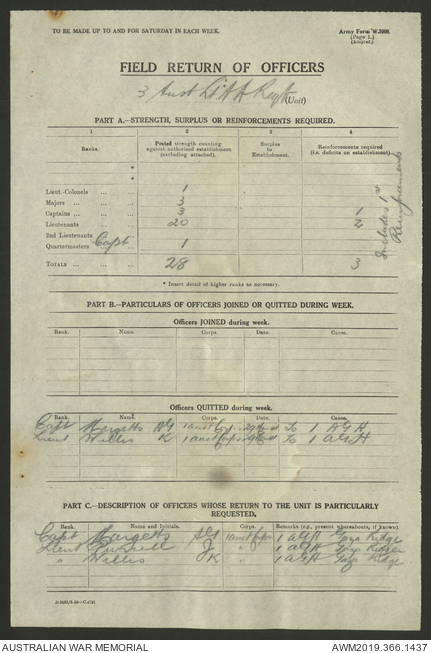 TO BE MADE UP TO AND FOR SATURDAY IN EACH WEEK.
Army Form W.3008.
(Page 1.)
(Adapted.)
FIELD RETURN OF OFFICERS
3 Aust Lt A A Regt (Unit)
PART A.—STRENGTH, SURPLUS OR REINFORCEMENTS REQUIRED.
1 2 3 4
Ranks. Posted strength counting against authorized establishment (excluding attached). Surplus to Establishment. Reinforcements required (i.e. deficits on establishment).
*
*
Lieut.-Colonels ... ... 1
Majors ... ... ... 3
Captains ... ... ... 3 1
Lieutenants ... ... 20 2
2nd Lieutenants
Quartermasters Capt 1
TOTALS ... ... 28 3
Includes 1st Reinforcements
* Insert detail of higher ranks as necessary.
PART B.—PARTICULARS OF OFFICERS JOINED OR QUITTED DURING WEEK.
Officers JOINED during week.
Rank. Name. Corps. Date. Cause.
Officers QUITTED during week.
Rank. Name. Corps. Date. Cause.
Capt Margetts 1 Aust Corps To 1 AGH
Lieut Willis K 1 Aust Corps To 1 AGH
PART C.—DESCRIPTION OF OFFICERS WHOSE RETURN TO THE UNIT IS PARTICULARLY REQUESTED.
Rank. Name and Initials. Corps. Remarks (e.g., present whereabouts, if known).
Capt Margetts 1 Aust Corps 1 AGH Gaza Ridge
Lieut J " 1 AGH Gaza Ridge
" Willis K " 1 AGH Gaza Ridge
AUSTRALIAN WAR MEMORIAL
AWM2019.366.1437